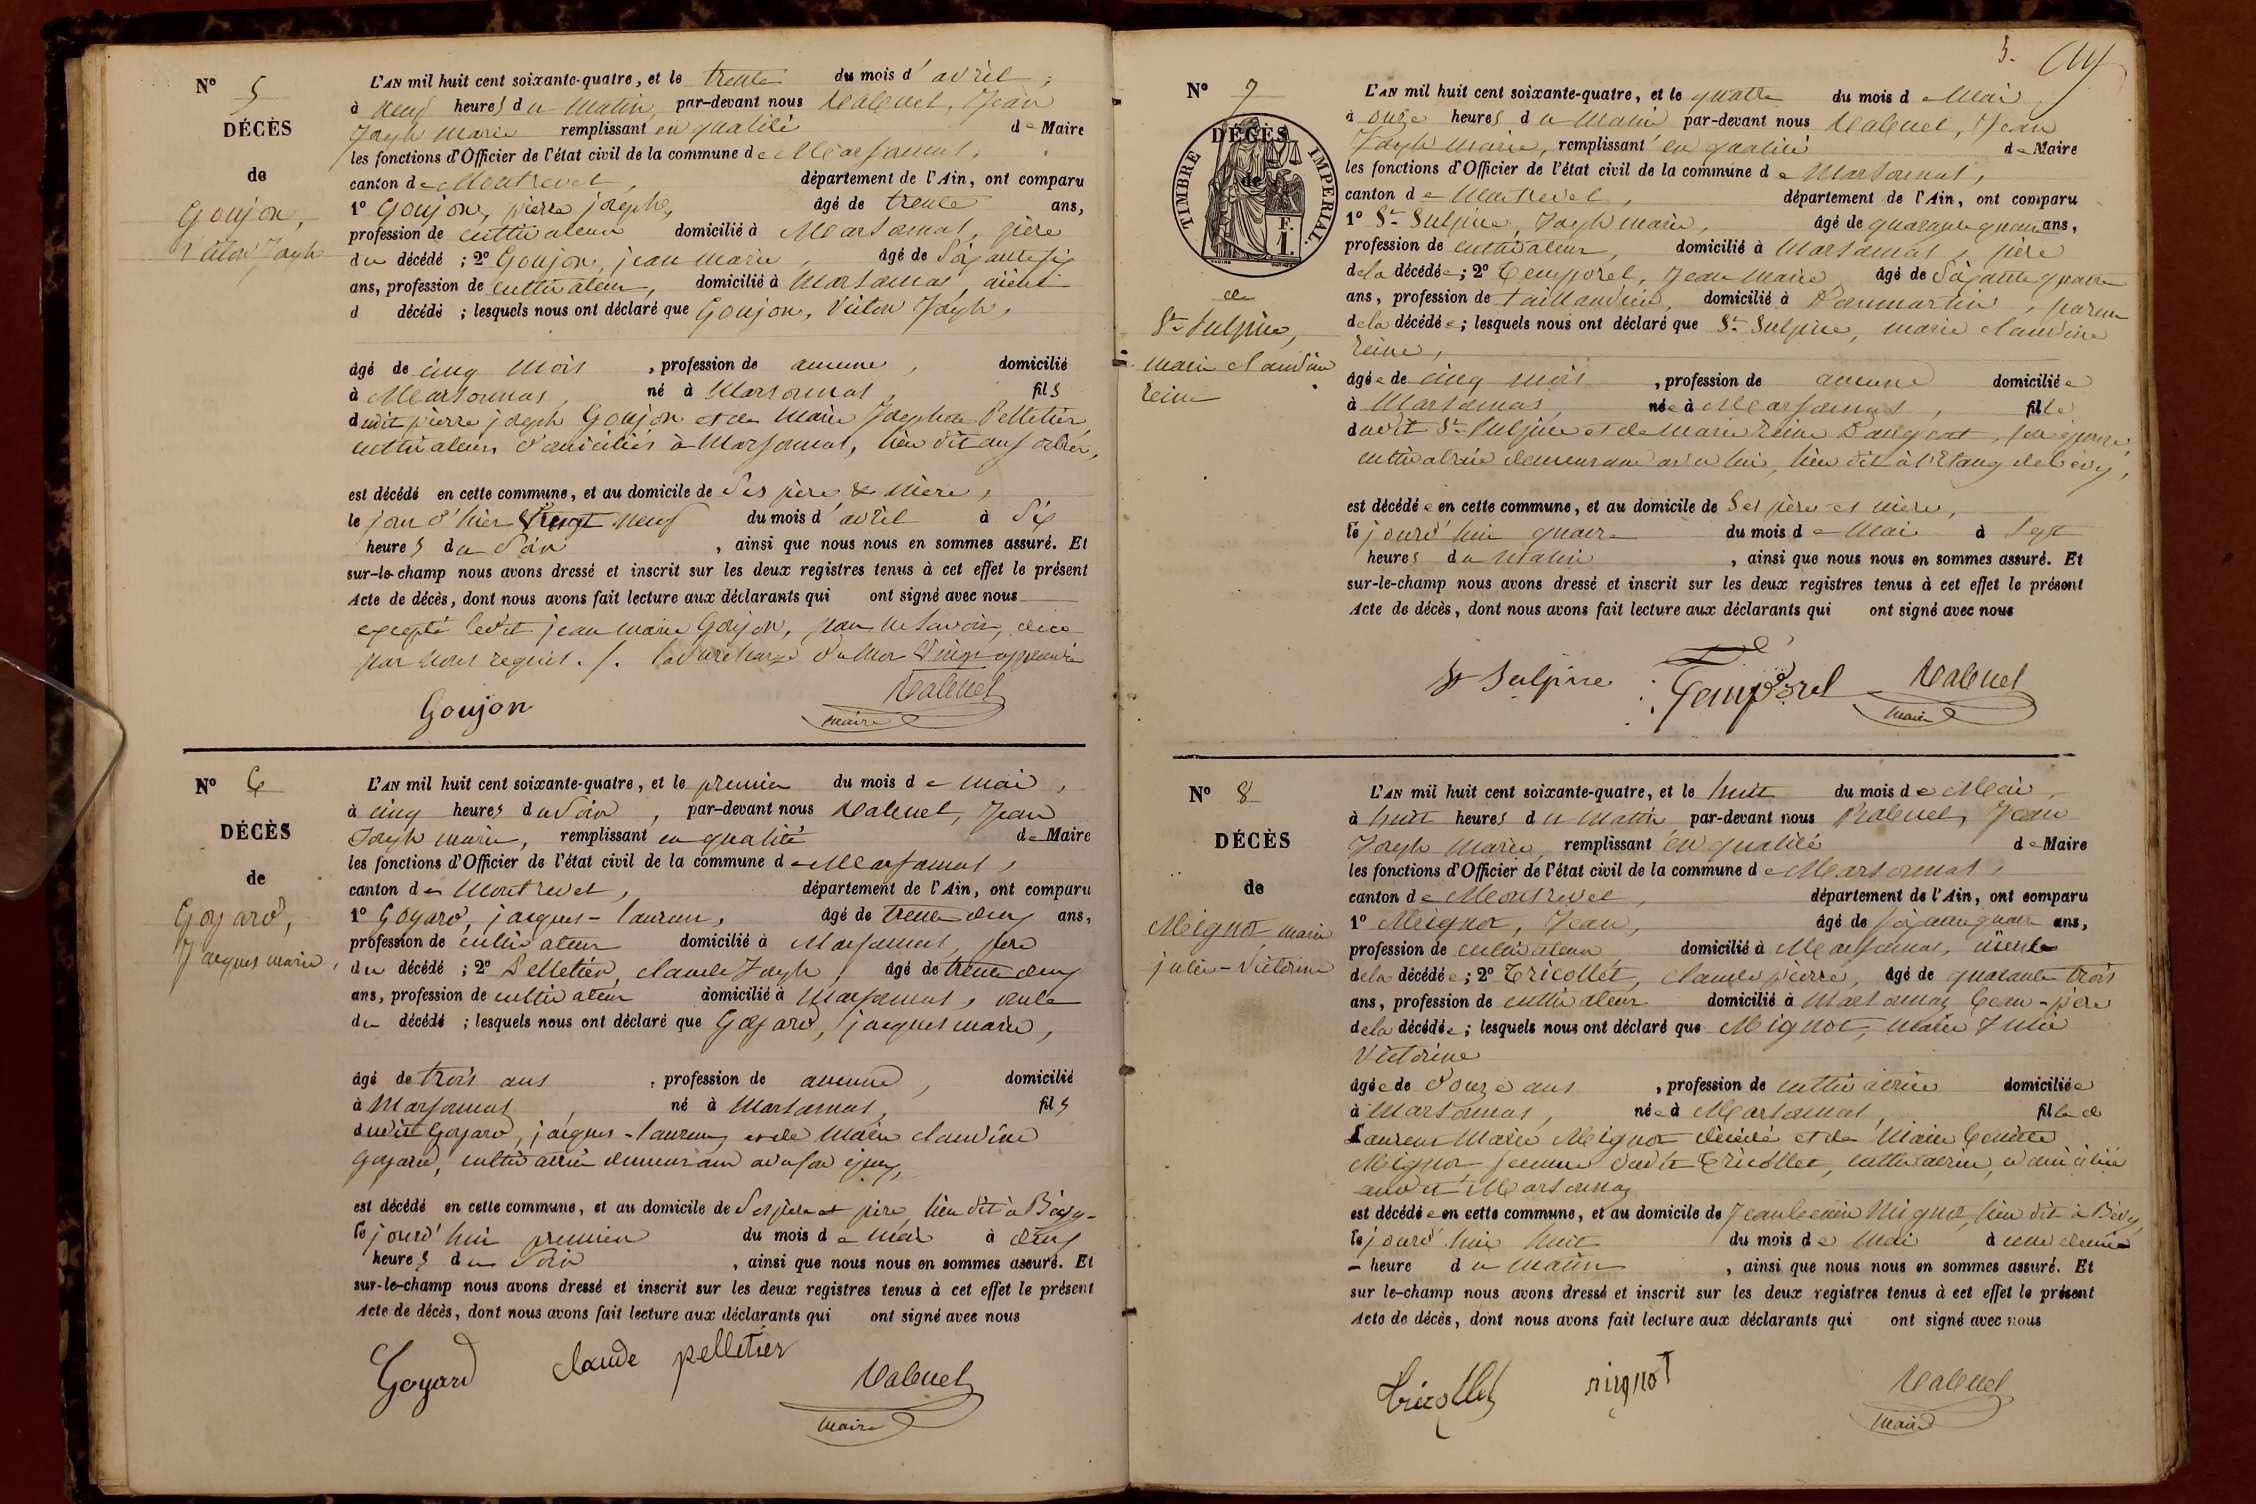 Nº 5
DÉCÈS
de
Goujon,
Victor Joseph
L'AN mil huit cent soixante-quatre, et le trente du mois d'avril,
à neuf heures du matin, par-devant nous Rabuel, Jean
Joseph Marie remplissant en qualité de Maire
les fonctions d'Officier de l'état civil de la commune de Marsonnas,
canton de Montrevel, département de l'Ain, ont comparu
1º Goujon, pierre joseph, âgé de trente ans,
profession de cultivateur domicilié à Marsonnas, père
du décédé ; 2º Goujon, jean marie, âgé de soixante six
ans, profession de cultivateur, domicilié à Marsonnas, aïeul
d décédé ; lesquels nous ont déclaré que Goujon, Victor Joseph,
âgé de cinq mois, profession de aucune, domicilié
à Marsonnas, né à Marsonnas, fils
dudit pierre joseph Goujon et de Marie Josephte Pelletier,
cultivateurs domiciliés à Marsonnas, lieu dit aux
est décédé en cette commune, et au domicile de Ses père & mère,
le jour d'hier vingt neuf du mois d'avril à Six
heures du Soir, ainsi que nous nous en sommes assuré. Et
sur-le-champ nous avons dressé et inscrit sur les deux registres tenus à cet effet le présent
Acte de décès, dont nous avons fait lecture aux déclarants qui ont signé avec nous
excepté ledit jean marie Goujon, pour ne savoir, de ce
par nous requis ./. la surcharge du mot Vingt approuvée
Goujon Rabuel
maire
Nº 6
DÉCÈS
de
Goyard,
Jacques marie,
L'AN mil huit cent soixante-quatre, et le premier du mois de mai,
à cinq heures du Soir, par-devant nous Rabuel, Jean
Joseph marie, remplissant en qualité de Maire
les fonctions d'Officier de l'état civil de la commune de Marsonnas,
canton de Montrevel, département de l'Ain, ont comparu
1º Goyard, jacques-laurent, âgé de trente deux ans,
profession de cultivateur domicilié à Marsonnas, père
du décédé ; 2º Pelletier, claude Joseph, âgé de trente deux
ans, profession de cultivateur domicilié à Marsonnas, oncle
du décédé ; lesquels nous ont déclaré que Goyard, jacques marie,
âgé de trois ans, profession de aucune, domicilié
à Marsonnas, né à Marsonnas, fils
dudit Goyard, jacques-laurent, et de Marie claudine
Goyard, cultivatrice demeurant avec son époux,
est décédé en cette commune, et au domicile de Ses père et mère, lieu dit à Bévy,
le jourd'hui premier du mois de mai à deux
heures du Soir, ainsi que nous nous en sommes assuré. Et
sur-le-champ nous avons dressé et inscrit sur les deux registres tenus à cet effet le présent
Acte de décès, dont nous avons fait lecture aux déclarants qui ont signé avec nous
Goyard claude pelletier Rabuel
maire
3.
Nº 7
DÉCÈS
de
TIMBRE IMPERIAL
de
St Sulpice,
marie claudine
reine
L'AN mil huit cent soixante-quatre, et le quatre du mois de Mai
à onze heures du Matin par-devant nous Rabuel, Jean
Joseph Marie, remplissant en qualité de Maire
les fonctions d'Officier de l'état civil de la commune de Marsonnas,
canton de Montrevel, département de l'Ain, ont comparu
1º St Sulpice, Joseph marie, âgé de quarante quatre ans,
profession de cultivateur, domicilié à Marsonnas, père
de la décédée ; 2º Temporel, Jean Marie, âgé de soixante quatre
ans, profession de taillandier, domicilié à Dommartin, parent
de la décédée ; lesquels nous ont déclaré que St Sulpice, marie claudine
reine,
âgée de cinq mois, profession de aucune domiciliée
à Marsonnas, née à Marsonnas, fille
dudit St Sulpice et de Marie Reine son épouse,
cultivatrice demeurant avec lui, lieu dit à l'Etang de Bévy,
est décédée en cette commune, et au domicile de Ses père et mère,
le jourd'hui quatre du mois de Mai à Sept
heures du Matin, ainsi que nous nous en sommes assuré. Et
sur-le-champ nous avons dressé et inscrit sur les deux registres tenus à cet effet le présent
Acte de décès, dont nous avons fait lecture aux déclarants qui ont signé avec nous
St Sulpice Temporel Rabuel
maire
Nº 8
DÉCÈS
de
Mignot, marie
julie-Victorine
L'AN mil huit cent soixante-quatre, et le huit du mois de Mai,
à huit heures du Matin par-devant nous Rabuel, Jean
Joseph Marie, remplissant en qualité de Maire
les fonctions d'Officier de l'état civil de la commune de Marsonnas,
canton de Montrevel, département de l'Ain, ont comparu
1º Mignot, Jean, âgé de soixante quatre ans,
profession de cultivateur domicilié à Marsonnas, aïeul
de la décédée ; 2º Tricollet, claude pierre, âgé de quarante trois
ans, profession de cultivateur domicilié à Marsonnas, beau-père
de la décédée ; lesquels nous ont déclaré que Mignot, Marie Julie
Victorine
âgée de douze ans, profession de cultivatrice domiciliée
à Marsonnas, née à Marsonnas, fille de
Laurent Marie Mignot décédé et de Marie
Mignot femme dudit Tricollet, cultivatrice, domiciliée
audit Marsonnas
est décédée en cette commune, et au domicile de Mignot, lieu dit à Bévy,
le jourd'hui huit du mois de Mai à une demie
heure du Matin, ainsi que nous nous en sommes assuré. Et
sur le-champ nous avons dressé et inscrit sur les deux registres tenus à cet effet le présent
Acte de décès, dont nous avons fait lecture aux déclarants qui ont signé avec nous
tricollet mignot Rabuel
maire